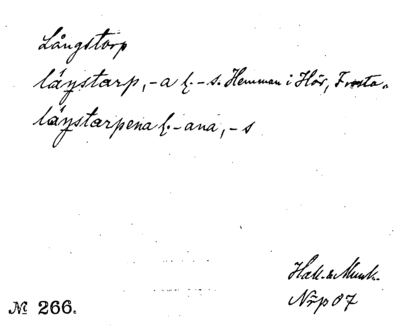 Långstorp
låŋstarp, -a l. -s. Hemman i Hör, Frosta.
låŋstarpena l. -ana, -s
Hall. & Munk.
Nrp 07
№ 266.